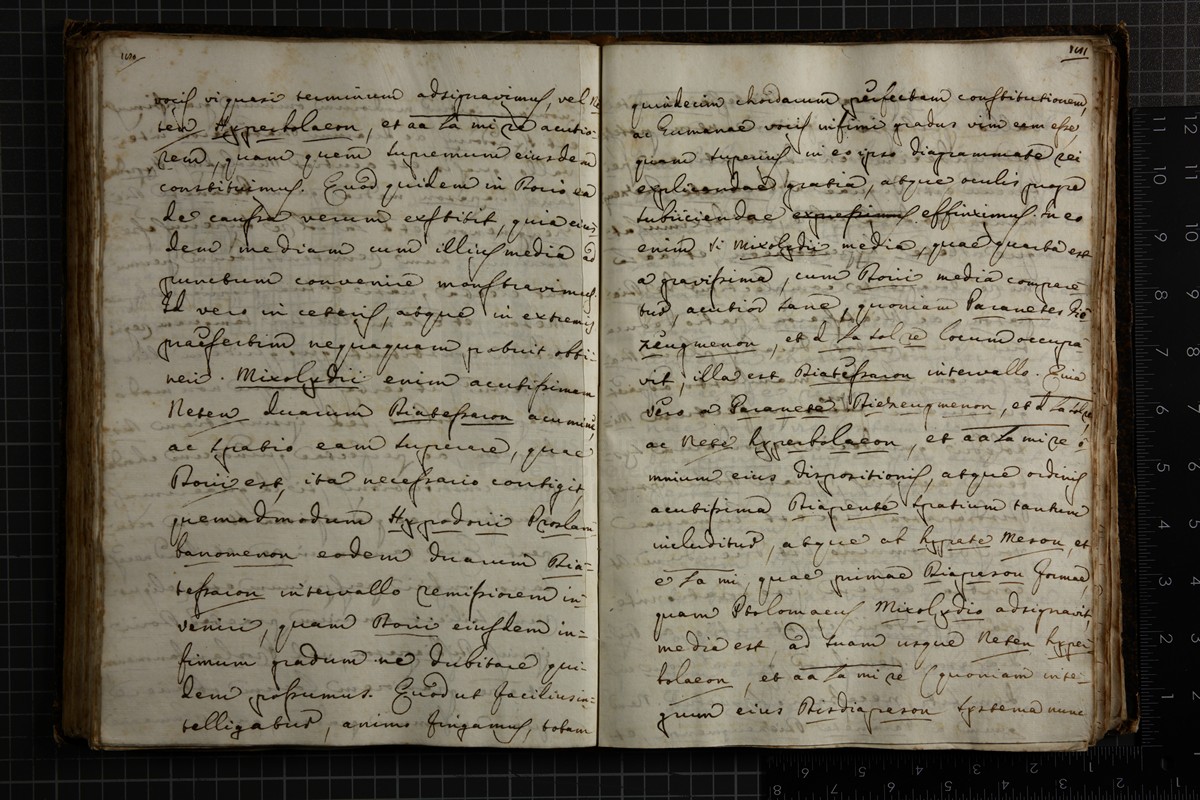 vocis vi quasi terminum adsignavimus, vel Ne
ten Hyperbolaeon, et aa la mi re acutio-
rem, quam quem supremum eiusdem
constituimus. Quod quidem in Dorio ea
de causa verum exstitit, quia eius
dem mediam cum illius media ad
punctum convenire monstravimus.
Id vero in ceteris, atque in extremis
praesertim nequaquam potuit obti-
neri. Mixolydii enim acutissimam
Neten duarum Diatessaron acumine,
ac spatio eam superare, quae
Dorii est, ita necessario contigit,
quemadmodum Hypodorii Proslam
banomenon eodem duarum Dia-
tessaron intervallo remissiorem in-
veniri, quam Dorii eiusdem in-
fimum gradum ne dubitare qui-
dem possumus. Quod ut facilius in-
telligatur, animo fingamus, totam
quindecim chordarum perfectam constitutionem,
ac humanae vocis infimi gradus vim eam esse
quam superius in eo ipso diagrammate rei
explicandae gratia, atque oculis prope
subiiciendae expressimus effinximus. In eo
enim si Mixolydii media, quae quarta est
a gravissima, cum Dorii media compare-
tur, acutior sane, quoniam Paranetes Die
zeugmenon, et d la sol re locum occupa-
vit, illa est Diatessaron intervallo. Quia
vero a Paranete Diezeugmenon, et d la sol re
ac Nete hyperbolaeon, et aa la mi re o-
mnium eius dispositionis, atque ordinis
acutissima Diapente spatium tantum
includitur, atque ab hypate Meson, et
e la mi, quae primae Diapason formae,
quam Ptolomaeus Mixolydio adsignavit,
media est, ad suam usque Neten hyper
bolaeon, et aa la mi re (quoniam inte-
grum eius Disdiapason systema nunc